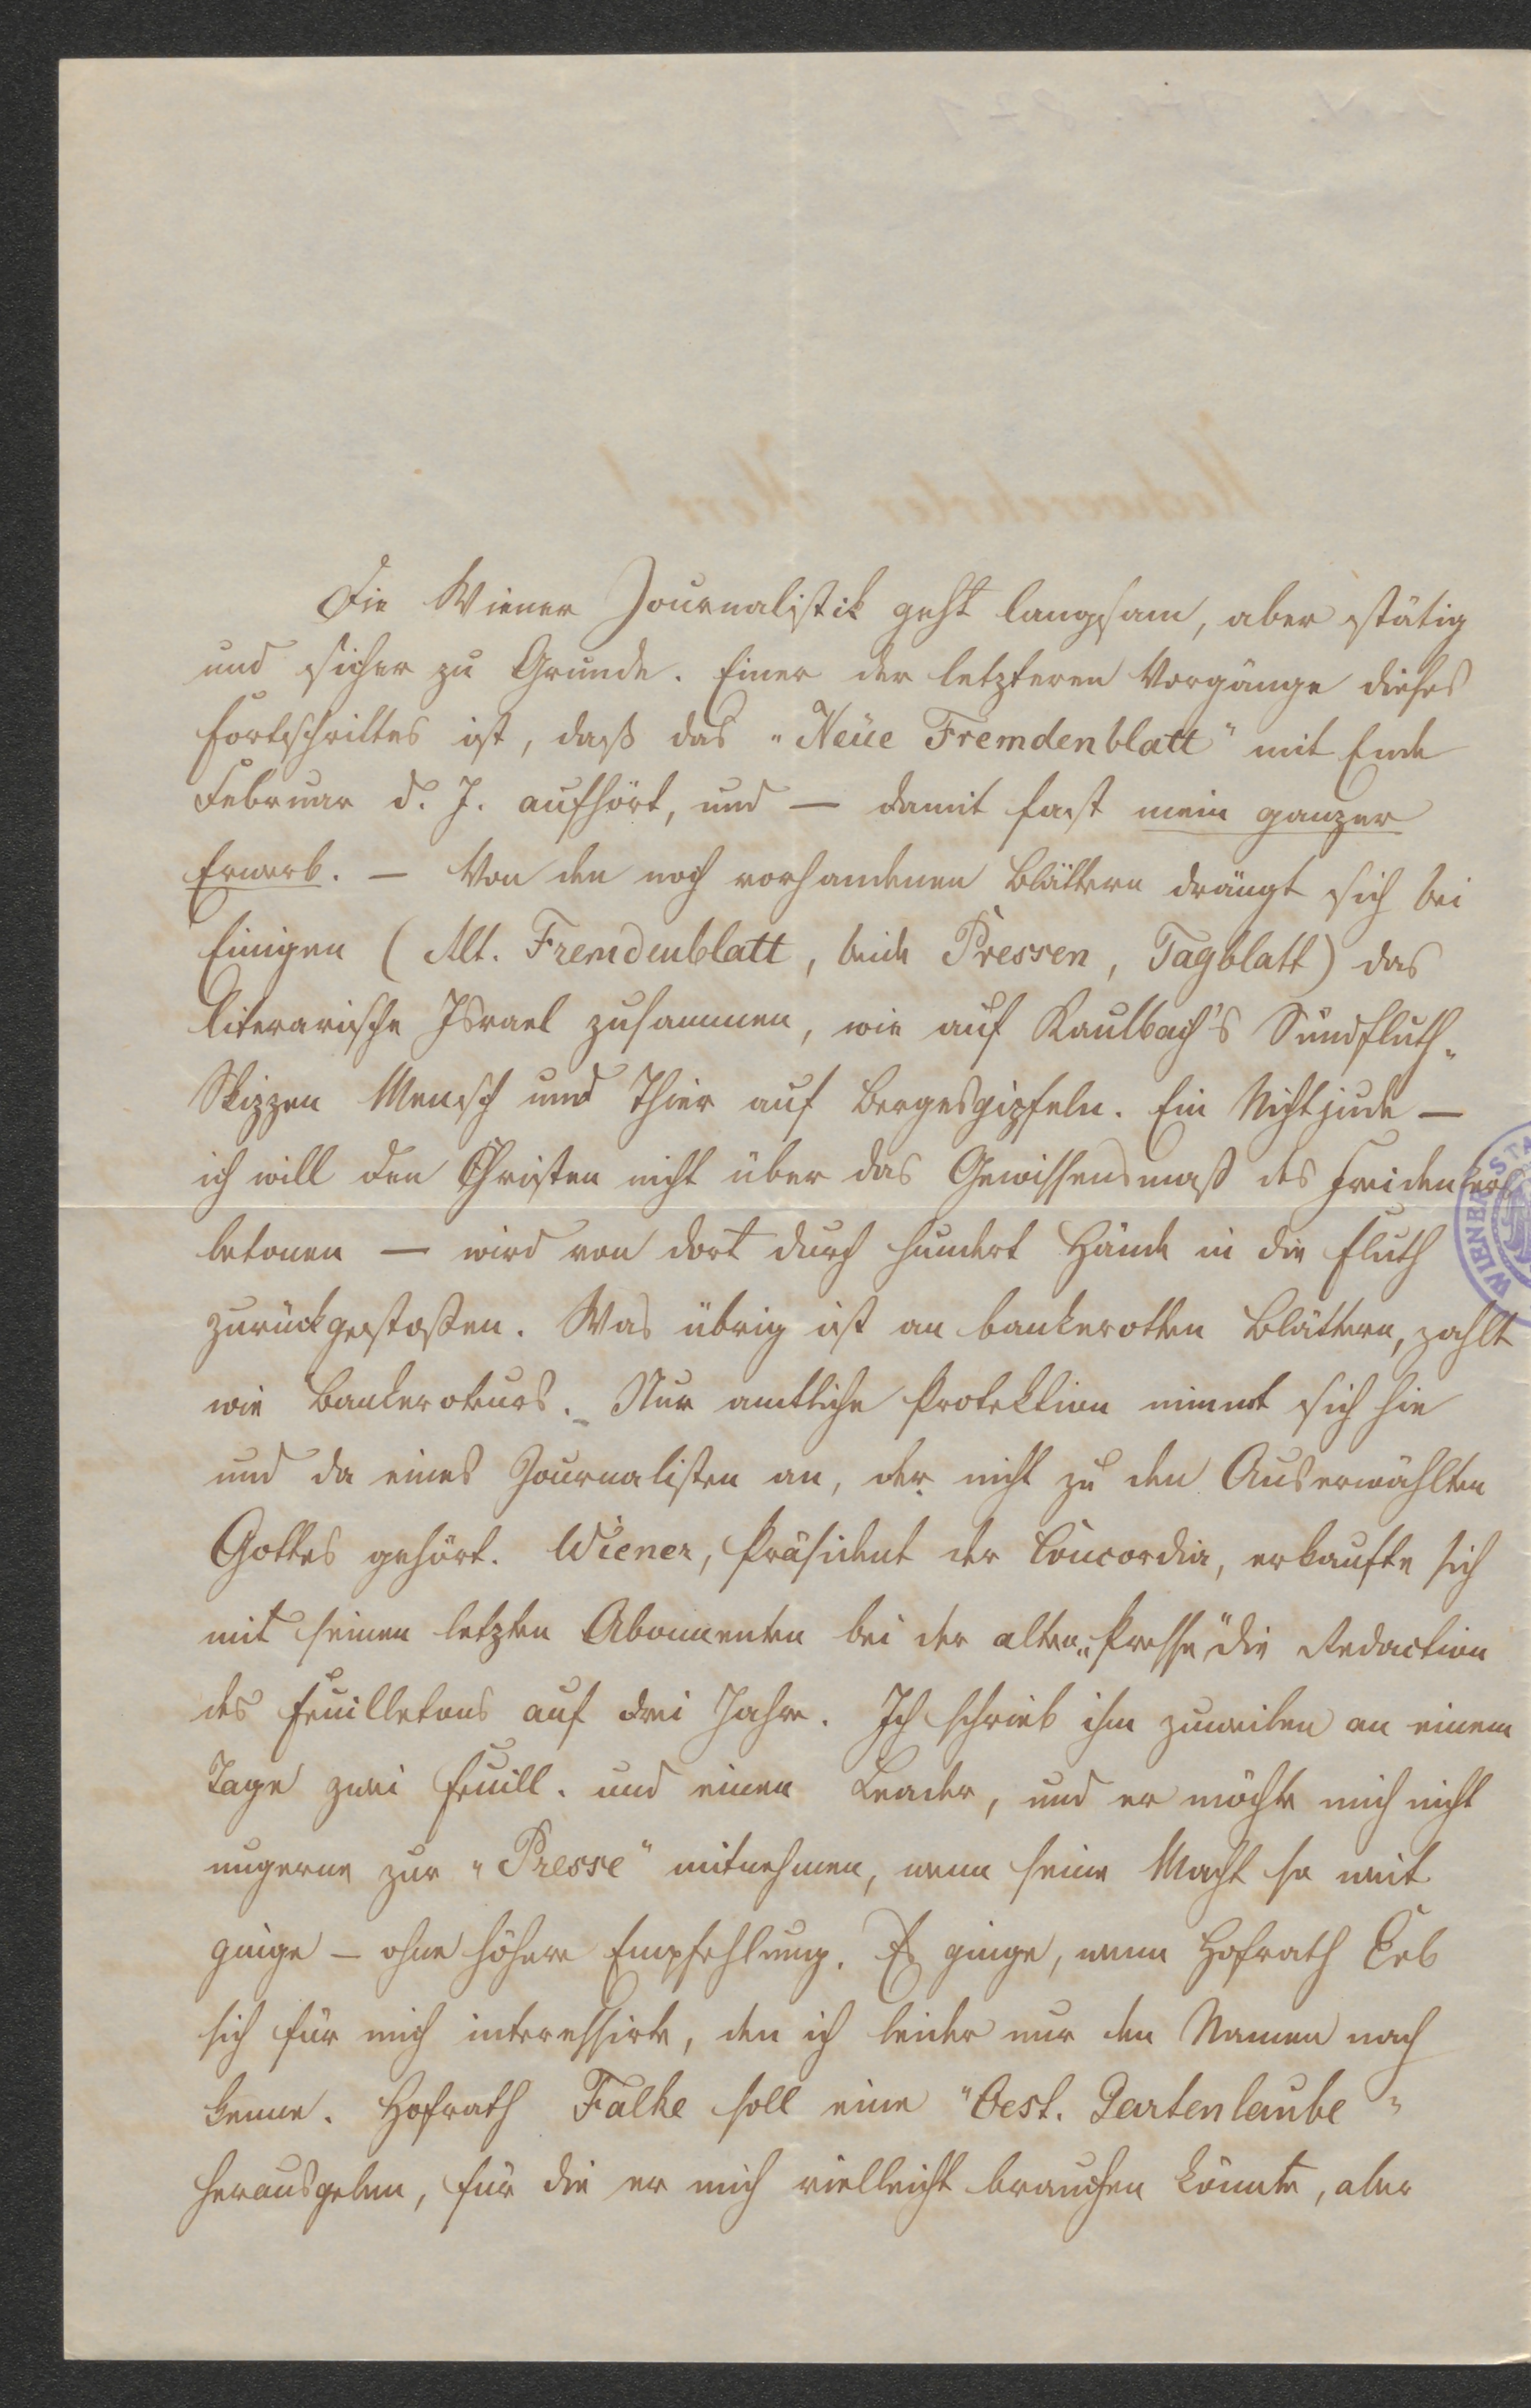 Die Wiener Journalistik geht langsam, aber stätig
und sicher zu Grunde. Einer der letzteren Vorgänge dieses
Fortschrittes ist, daß das „Neue Fremdenblatt" mit Ende
Februar d. J. aufhört, und — damit fast mein ganzer
Erwerb. — Von den noch vorhandenen Blättern drängt sich bei
Einigen (Alt. Fremdenblatt, beide Pressen, Tagblatt) das
literarische Israel zusammen, wie auf Kaulbach's Sündfluth-
Skizzen Mensch und Thier auf Bergesgipfeln. Ein Nichtjude —
ich will den Christen nicht über das Gewissensmaß des Freidenkers
betonen — wird von dort durch hundert Hände in die Fluth
zurückgestoßen. Was übrig ist an bankerotten Blättern, zahlt
wie Bankeroteurs. Nur amtliche Protektion nimmt sich hie
und da eines Journalisten an, der nicht zu den Auserwählten
Gottes gehört. Wiener, Präsident der Concordia, erkaufte sich
mit seinen letzten Abonnenten bei der alten „Presse" die Redaction
des Feuilletons auf drei Jahre. Ich schrieb ihm zuweilen an einem
Tage zwei Feuill. und einen Leader, und er möchte mich nicht
ungerne zur „Presse" mitnehmen, wenn seine Macht so weit
ginge — ohne höhere Empfehlung. Es ginge, wenn Hofrath
sich für mich interessirte, den ich leider nur den Namen nach
kenne. Hofrath Falke soll eine „Oest. Gartenlaube"
herausgeben, für die er mich vielleicht brauchen könnte, aber
WIENER STA